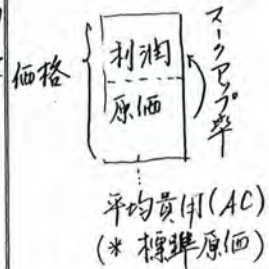 価格
利潤
原価
マークアップ率
平均費用(AC)
(* 標準原価)